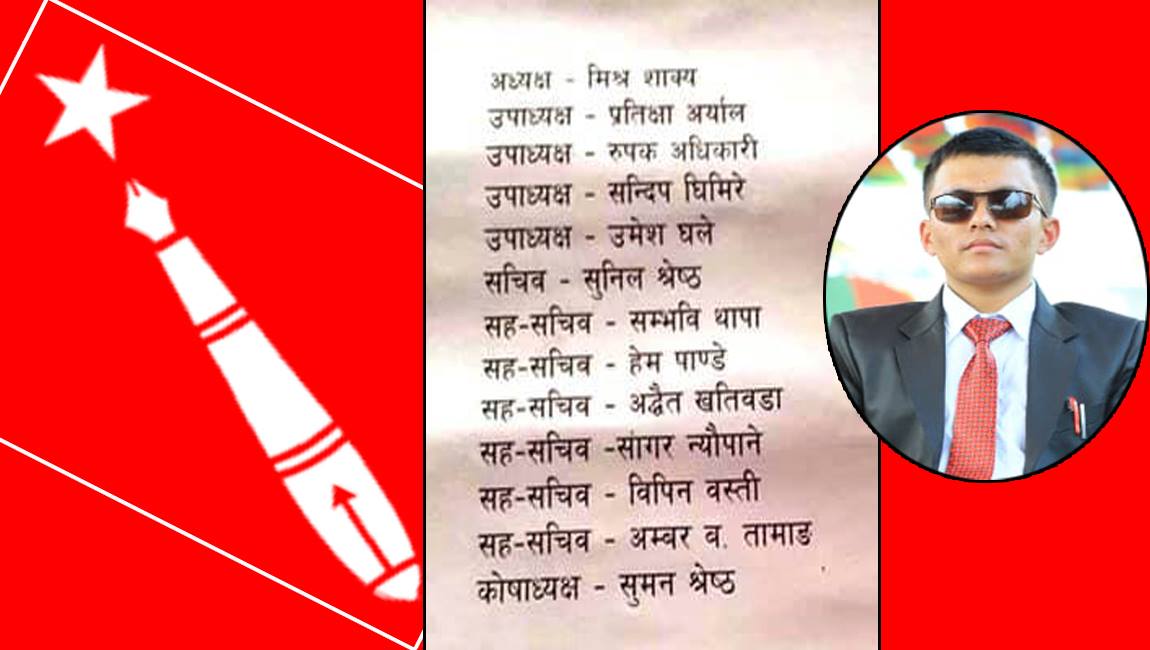 अध्यक्ष - मिश्र शाक्य
उपाध्यक्ष - प्रतिक्षा अर्याल
उपाध्यक्ष - रुपक अधिकारी
उपाध्यक्ष - सन्दिप घिमिरे
उपाध्यक्ष - उमेश घले
सचिव - सुनिल श्रेष्ठ
सह-सचिव - सम्भवि थापा
सह-सचिव - हेम पाण्डे
सह-सचिव - अद्वैत खतिवडा
सह-सचिव -सागर न्यौपाने
सह-सचिव - विपिन वस्ती
सह-सचिव - अम्बर व. तामाङ
कोषाध्यक्ष - सुमन श्रेष्ठ